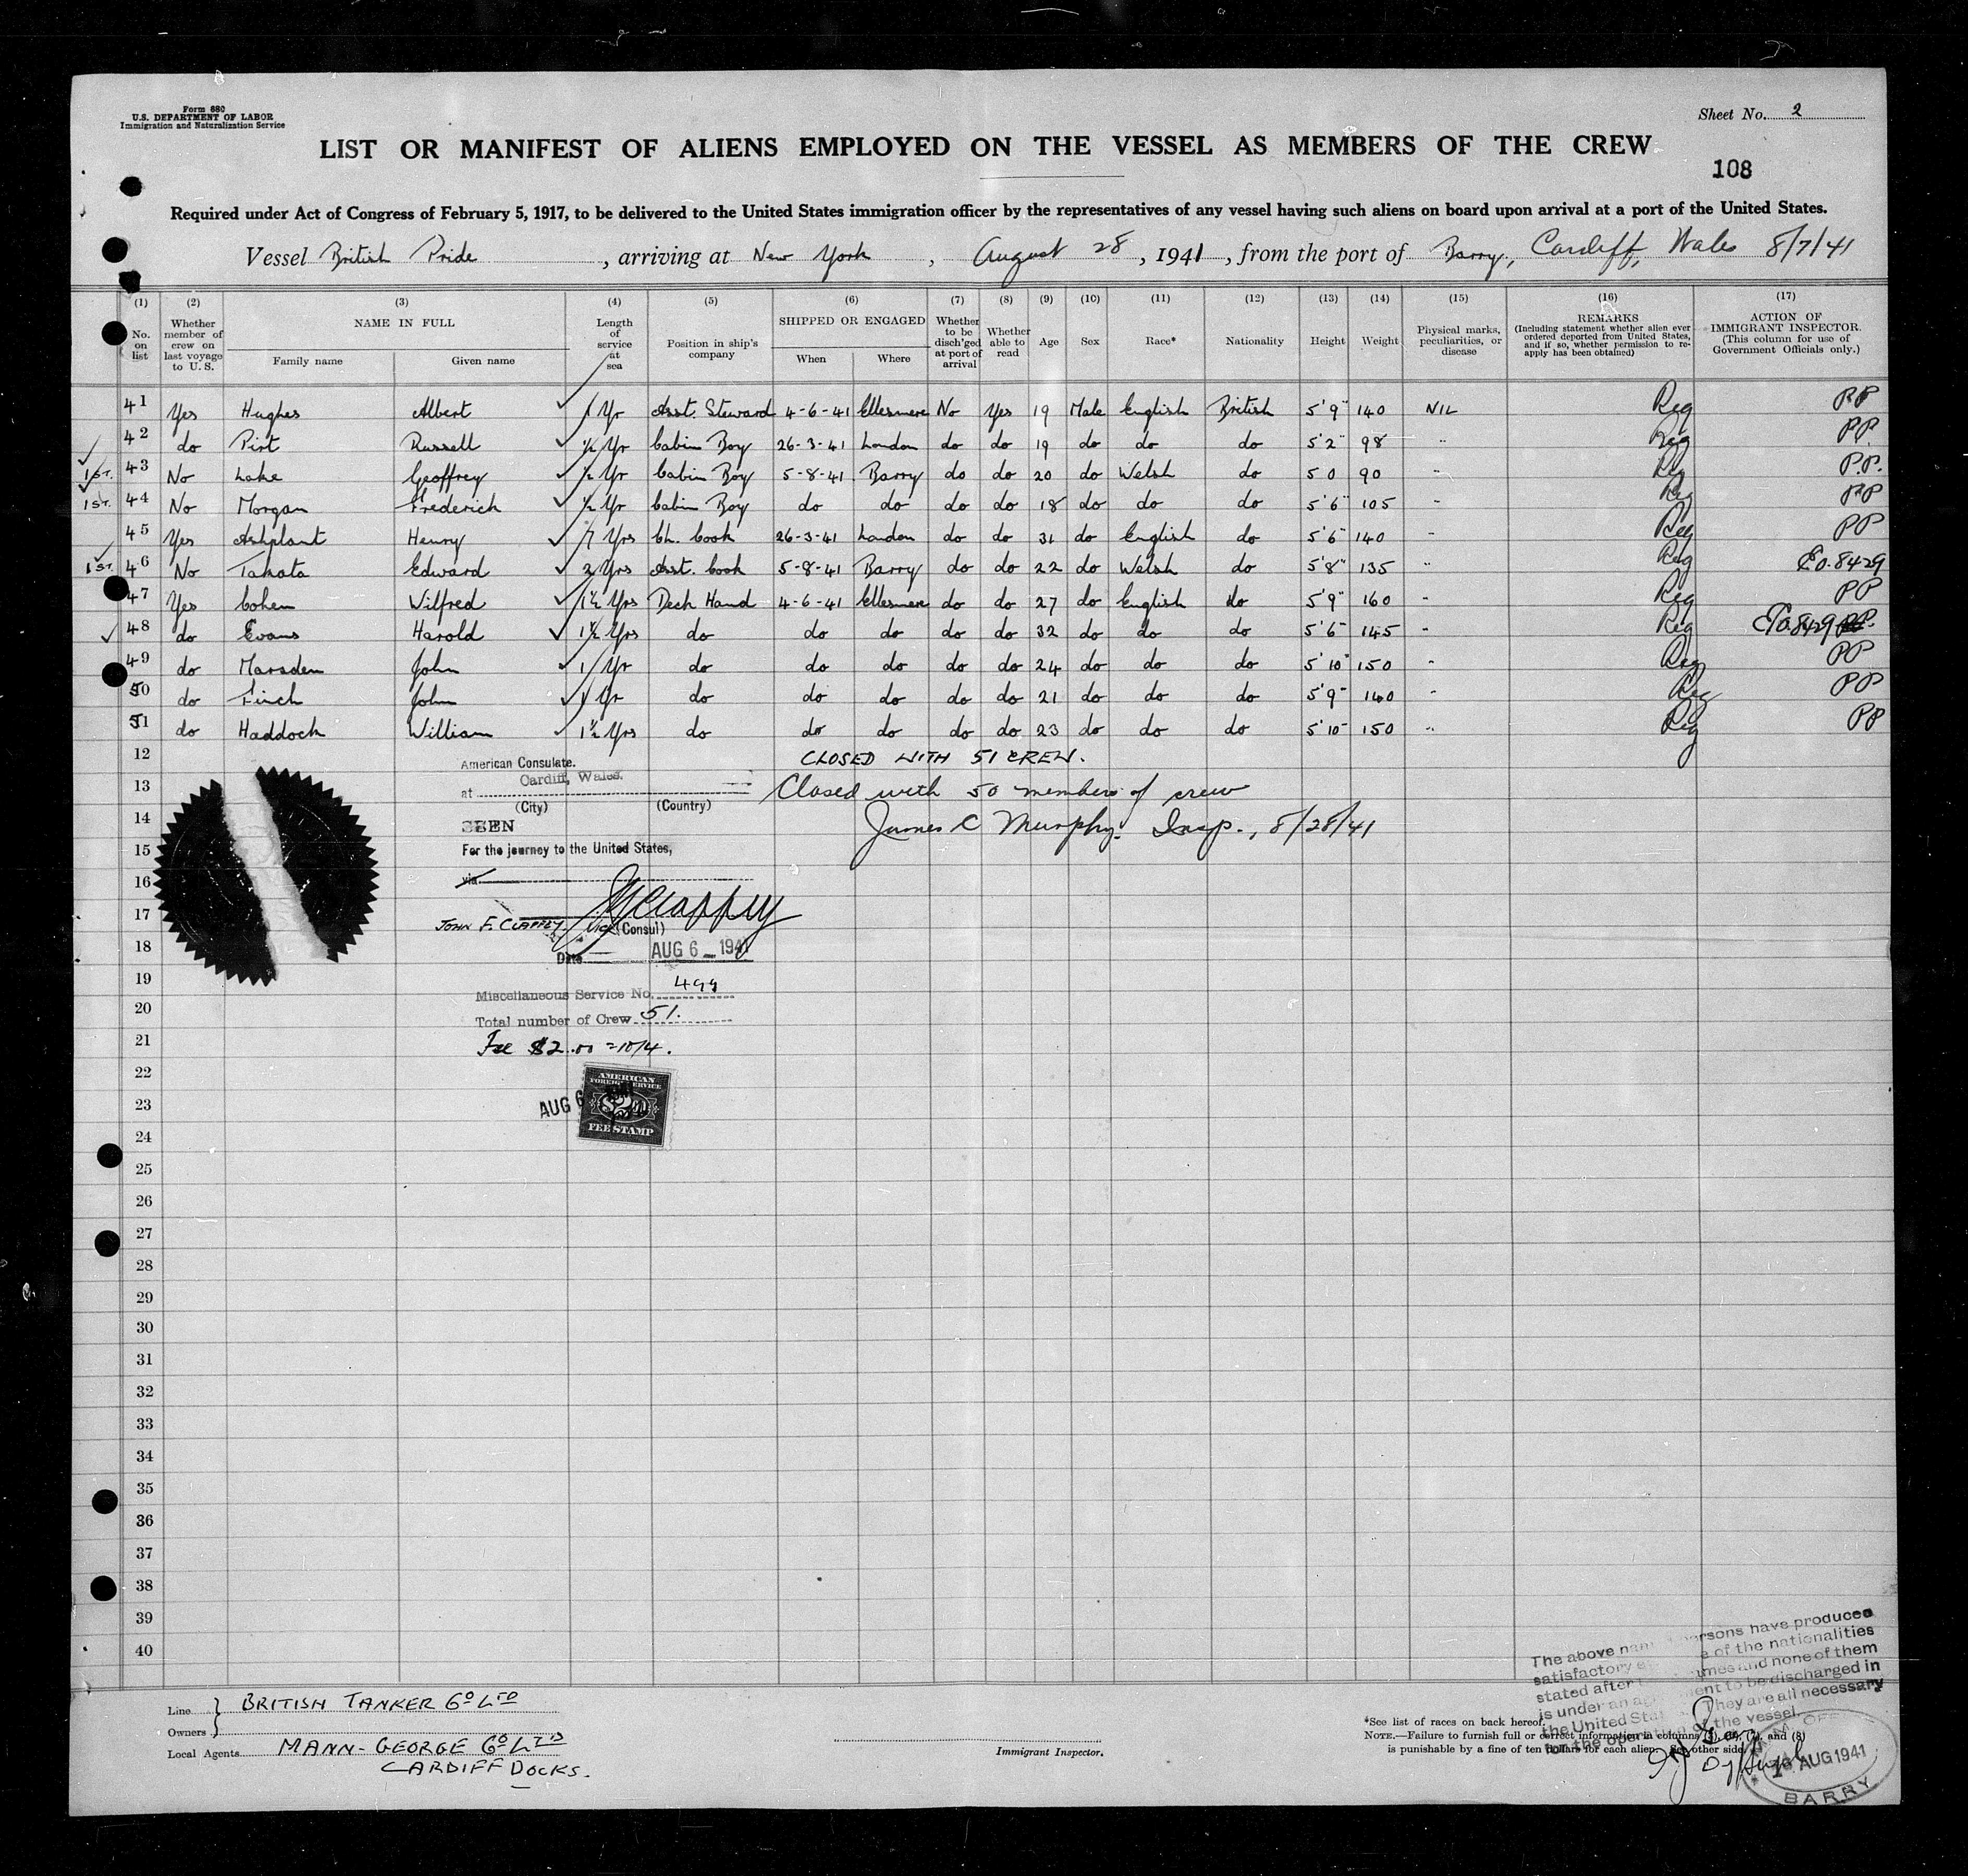 Form 680
U.S. DEPARTMENT OF LABOR
Immigration and Naturalization Service
Sheet No. 2
LIST OR MANIFEST OF ALIENS EMPLOYED ON THE VESSEL AS MEMBERS OF THE CREW
108
Required under Act of Congress of February 5, 1917, to be delivered to the United States immigration officer by the representatives of any vessel having such aliens on board upon arrival at a port of the United States.
Vessel British Pride, arriving at New York, August 28, 1941, from the port of Barry, Cardiff, Wales 8/7/41
(1) (2) (3) (4) (5) (6) (7) (8) (9) (10) (11) (12) (13) (14) (15) (16) (17)
No. on list
Whether member of crew on last voyage to U. S.
NAME IN FULL
Family name
Given name
Length of service at sea
Position in ship's company
SHIPPED OR ENGAGED
When
Where
Whether to be disch'ged at port of arrival
Whether able to read
Age
Sex
Race*
Nationality
Height
Weight
Physical marks, peculiarities, or disease
REMARKS
(Including statement whether alien ever ordered deported from United States, and if so, whether permission to reapply has been obtained)
ACTION OF IMMIGRANT INSPECTOR.
(This column for use of Government Officials only.)
41 Yes Hughes Albert 1 Yr Asst. Steward 4-6-41 Ellesmere No Yes 19 Male English British 5'9" 140 NIL Reg PP
42 do Pirt Russell ½ Yr Cabin Boy 26-3-41 London do do 19 do do do 5'2" 98 " Reg PP.
1ST. 43 No Lake Geoffrey ½ Yr Cabin Boy 5-8-41 Barry do do 20 do Welsh do 5 0 90 " Reg P.P.
1ST. 44 No Morgan Frederick ½ Yr Cabin Boy do do do do 18 do do do 5'6" 105 " Reg PP
45 Yes Ashplant Henry 7 Yrs Ch. Cook 26-3-41 London do do 31 do English do 5'6" 140 " Reg PP
1ST. 46 No Takata Edward 2 Yrs Asst. Cook 5-8-41 Barry do do 22 do Welsh do 5'8" 135 " Reg E.O. 8429
47 Yes Cohen Wilfred 1½ Yrs Deck Hand 4-6-41 Ellesmere do do 27 do English do 5'9" 160 " Reg PP
48 do Evans Harold 1½ Yrs do do do do do 32 do do do 5'6" 145 " Reg EO.8429 PP.
49 do Marsden John 1 Yr do do do do do 24 do do do 5'10" 150 " Reg PP
50 do Finch John 1 Yr do do do do do 21 do do do 5'9" 140 " Reg PP
51 do Haddock William 1½ Yrs do do do do do 23 do do do 5'10" 150 " Reg PP
12 CLOSED WITH 51 CREW.
American Consulate.
13 at Cardiff, Wales. Closed with 50 members of crew
(City) (Country)
14 SEEN James C Murphy. Insp., 8/28/41
15 For the journey to the United States,
16 via
17 JOHN F. CLAPPEY. Vice (Consul)
18 Date AUG 6 - 1941
19 Miscellaneous Service No. 499
20 Total number of Crew 51.
21 Fee $2.00 = 10/4.
22
23 AUG 6
AMERICAN
FOREIGN SERVICE
$2
FEE STAMP
24
25
26
27
28
29
30
31
32
33
34
35
36
37
38
39
40
The above persons have produced
satisfactory of the nationalities
stated after names and none of them
is under an agreement to be discharged in
the United States They are all necessary
for the operation of the vessel.
Line BRITISH TANKER Co LTD
Owners
Local Agents MANN-GEORGE Co LTD
CARDIFF DOCKS.
Immigrant Inspector.
*See list of races on back hereof.
NOTE.—Failure to furnish full or correct information in columns and (8)
is punishable by a fine of ten dollars for each alien. See other side.
AUG 1941
BARRY